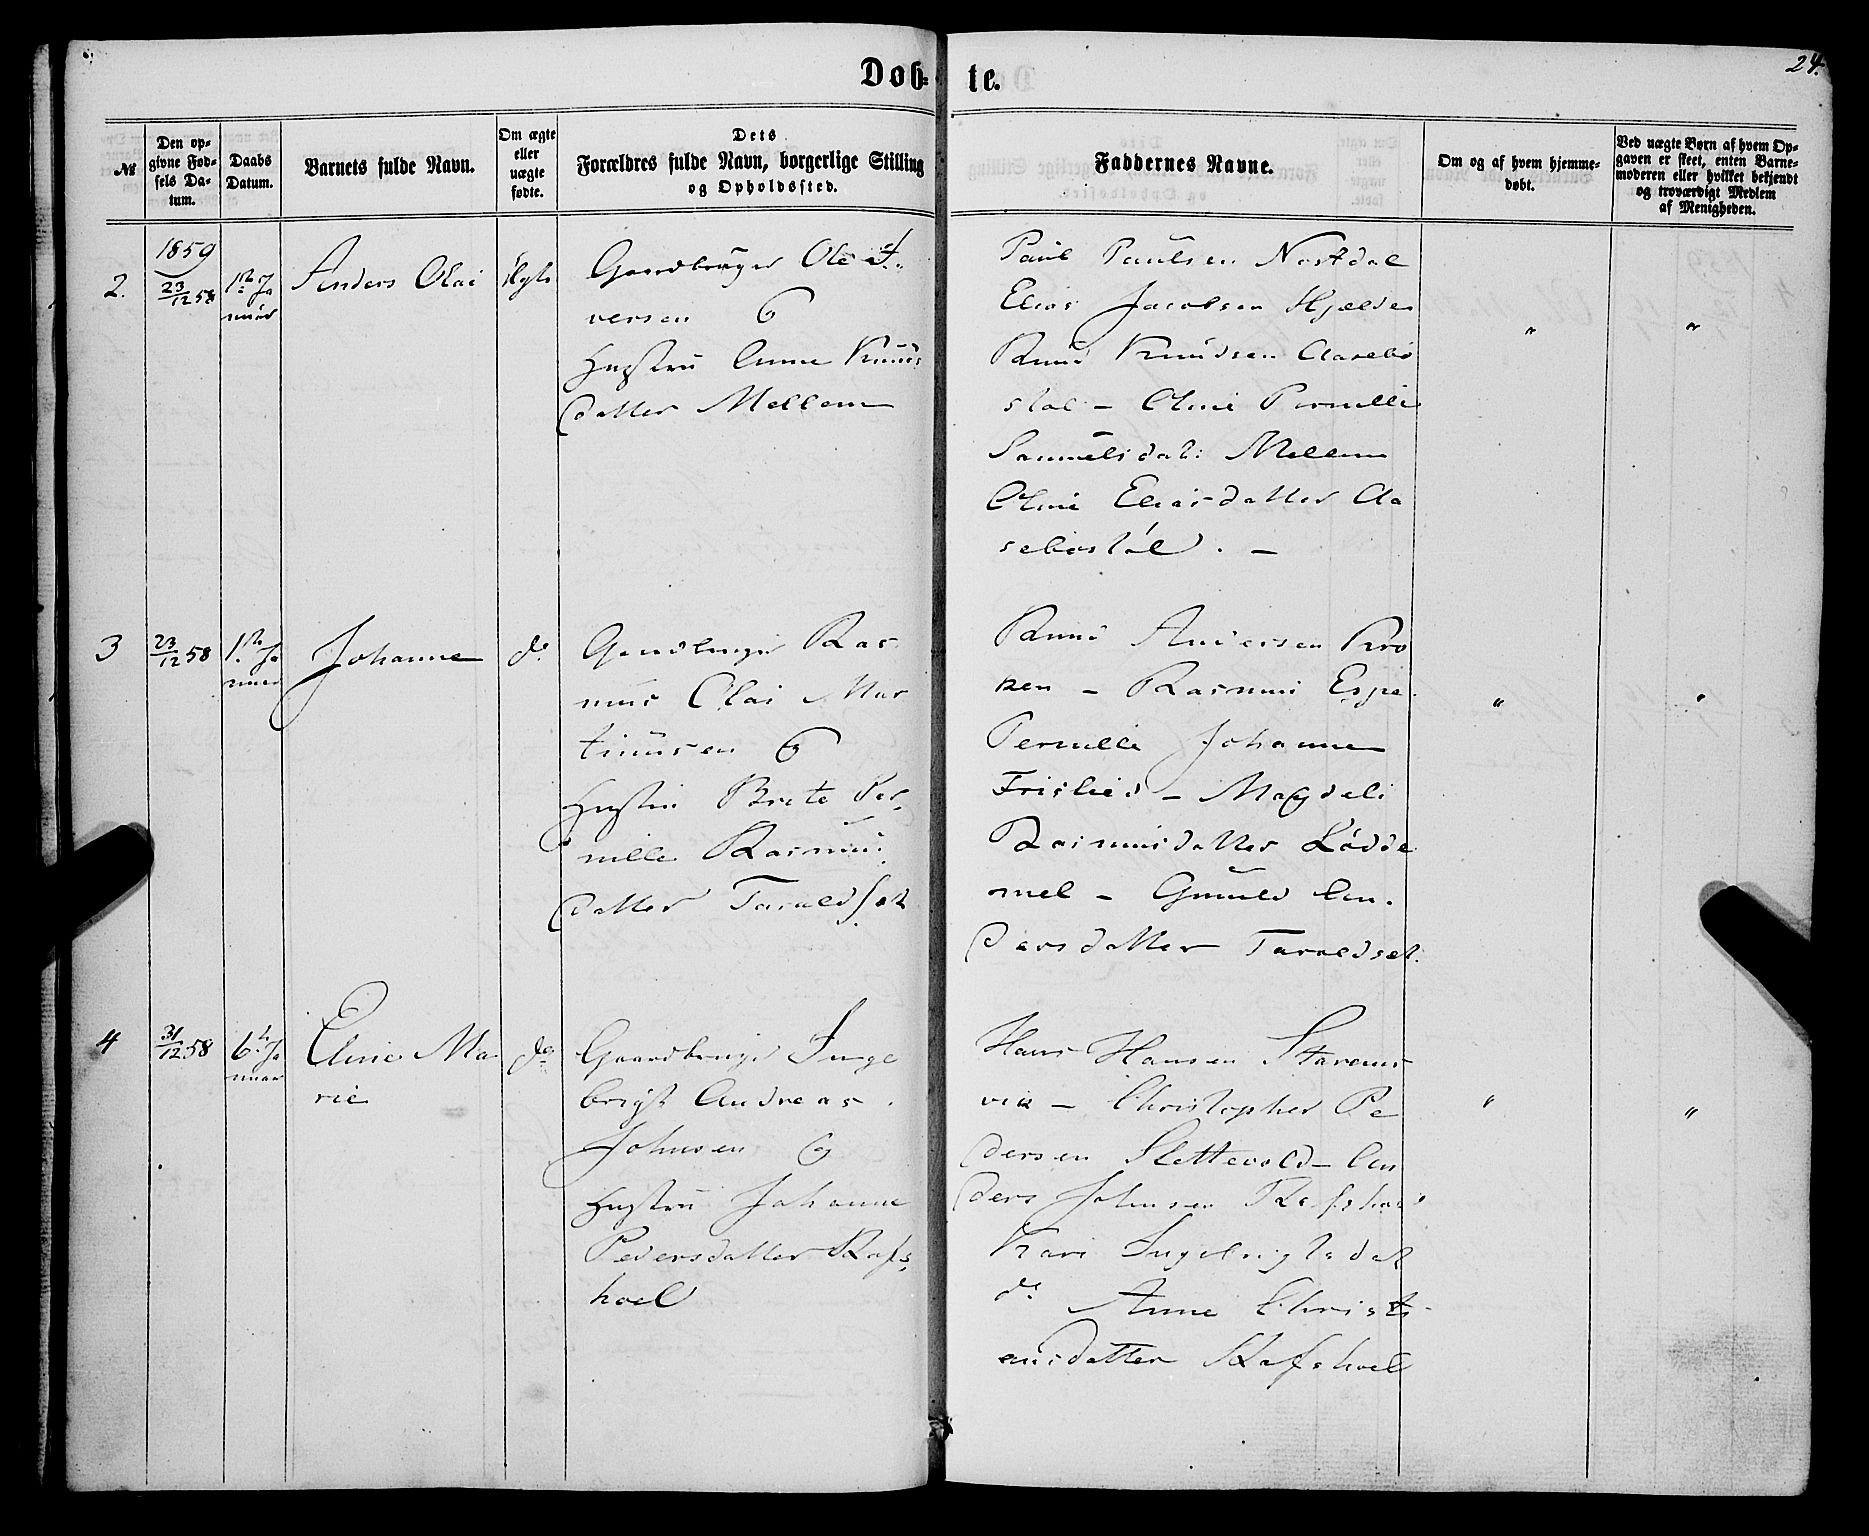 Døb-
te.
24.
№
Den op-
givne Fød-
sels Da-
tum.
Daabs
Datum.
Barnets fulde Navn.
Om ægte
eller
uægte
fødte.
Dets
Forældres fulde Navn, borgerlige Stilling
og Opholdssted.
Faddernes Navne.
Om og af hvem hjemme-
døbt.
Ved uægte Børn af hvem Op-
gaven er skeet, enten Barne-
moderen eller hvilket bekjendt
og troværdigt Medlem
af Menigheden.
1859
2.
23/12 58
1ste Ja
nuar
Anders Olai
Ægte
Gaardbruger Ole I-
versen &
Hustru Anne Knuds
datter Mellem
Paul Paulsen Nordal
Elias Jacobsen Hjelde
Knud Knudsen Aasebø
støl - Oline Pernille
Samuelsdat: Mellem
Oline Eliasdatter Aa
sebøstøl . -
"
"
3
23/12 58
1ste Ja
nuar
Johanne
do
Gaardbruger Ras
mus Olai Mar
tinusen &
Hustru Brete Per
nille Rasmus
datter Taraldset
Knud Andersen Kro
ken - Rasmus Espe
Pernille Johanne
Frislied - Magdeli
Rasmusdatter Lødde
mel - Gunild An-
dersdatter Taraldset.
"
"
4
31/12 58
6te Ja
nuar
Eline Ma
rie
do
Gaardbruger Inge
brigt Andreas
Johnsen &
Hustru Johanne
Pedersdatter Rafs
hoel
Hans Hansen Stavens
vik - Christopher Pe
dersen Slettevold - An
ders Johnsen Rafshoel
Kari Ingebrigtsdat
do Anne Christi-
ansdatter Rafshoel
"
"